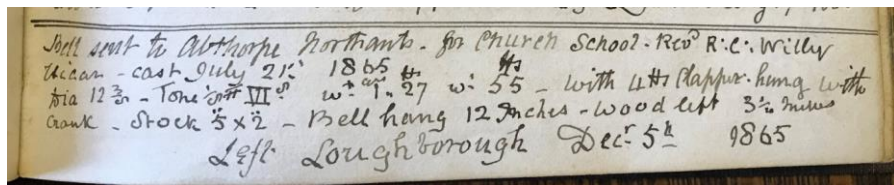 Bell sent to Abthorpe Northants. for Church School. Revd R. C. Willy
Vicar - cast July 21st 1865
dia 12 3/8 - Tone VI wt 1. 27 wt 55 - with 4 lbs Clapper. hung with
Crank - Stock 5 x 2 - Bell hang 12 Inches - wood left 3 1/2 inches
Left Loughborough Decr 5th 1865